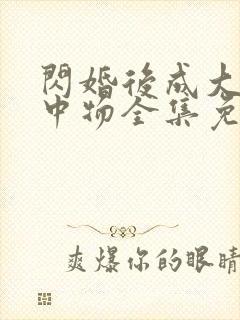 閃婚後成大
中物全集免
爽爆你的眼睛